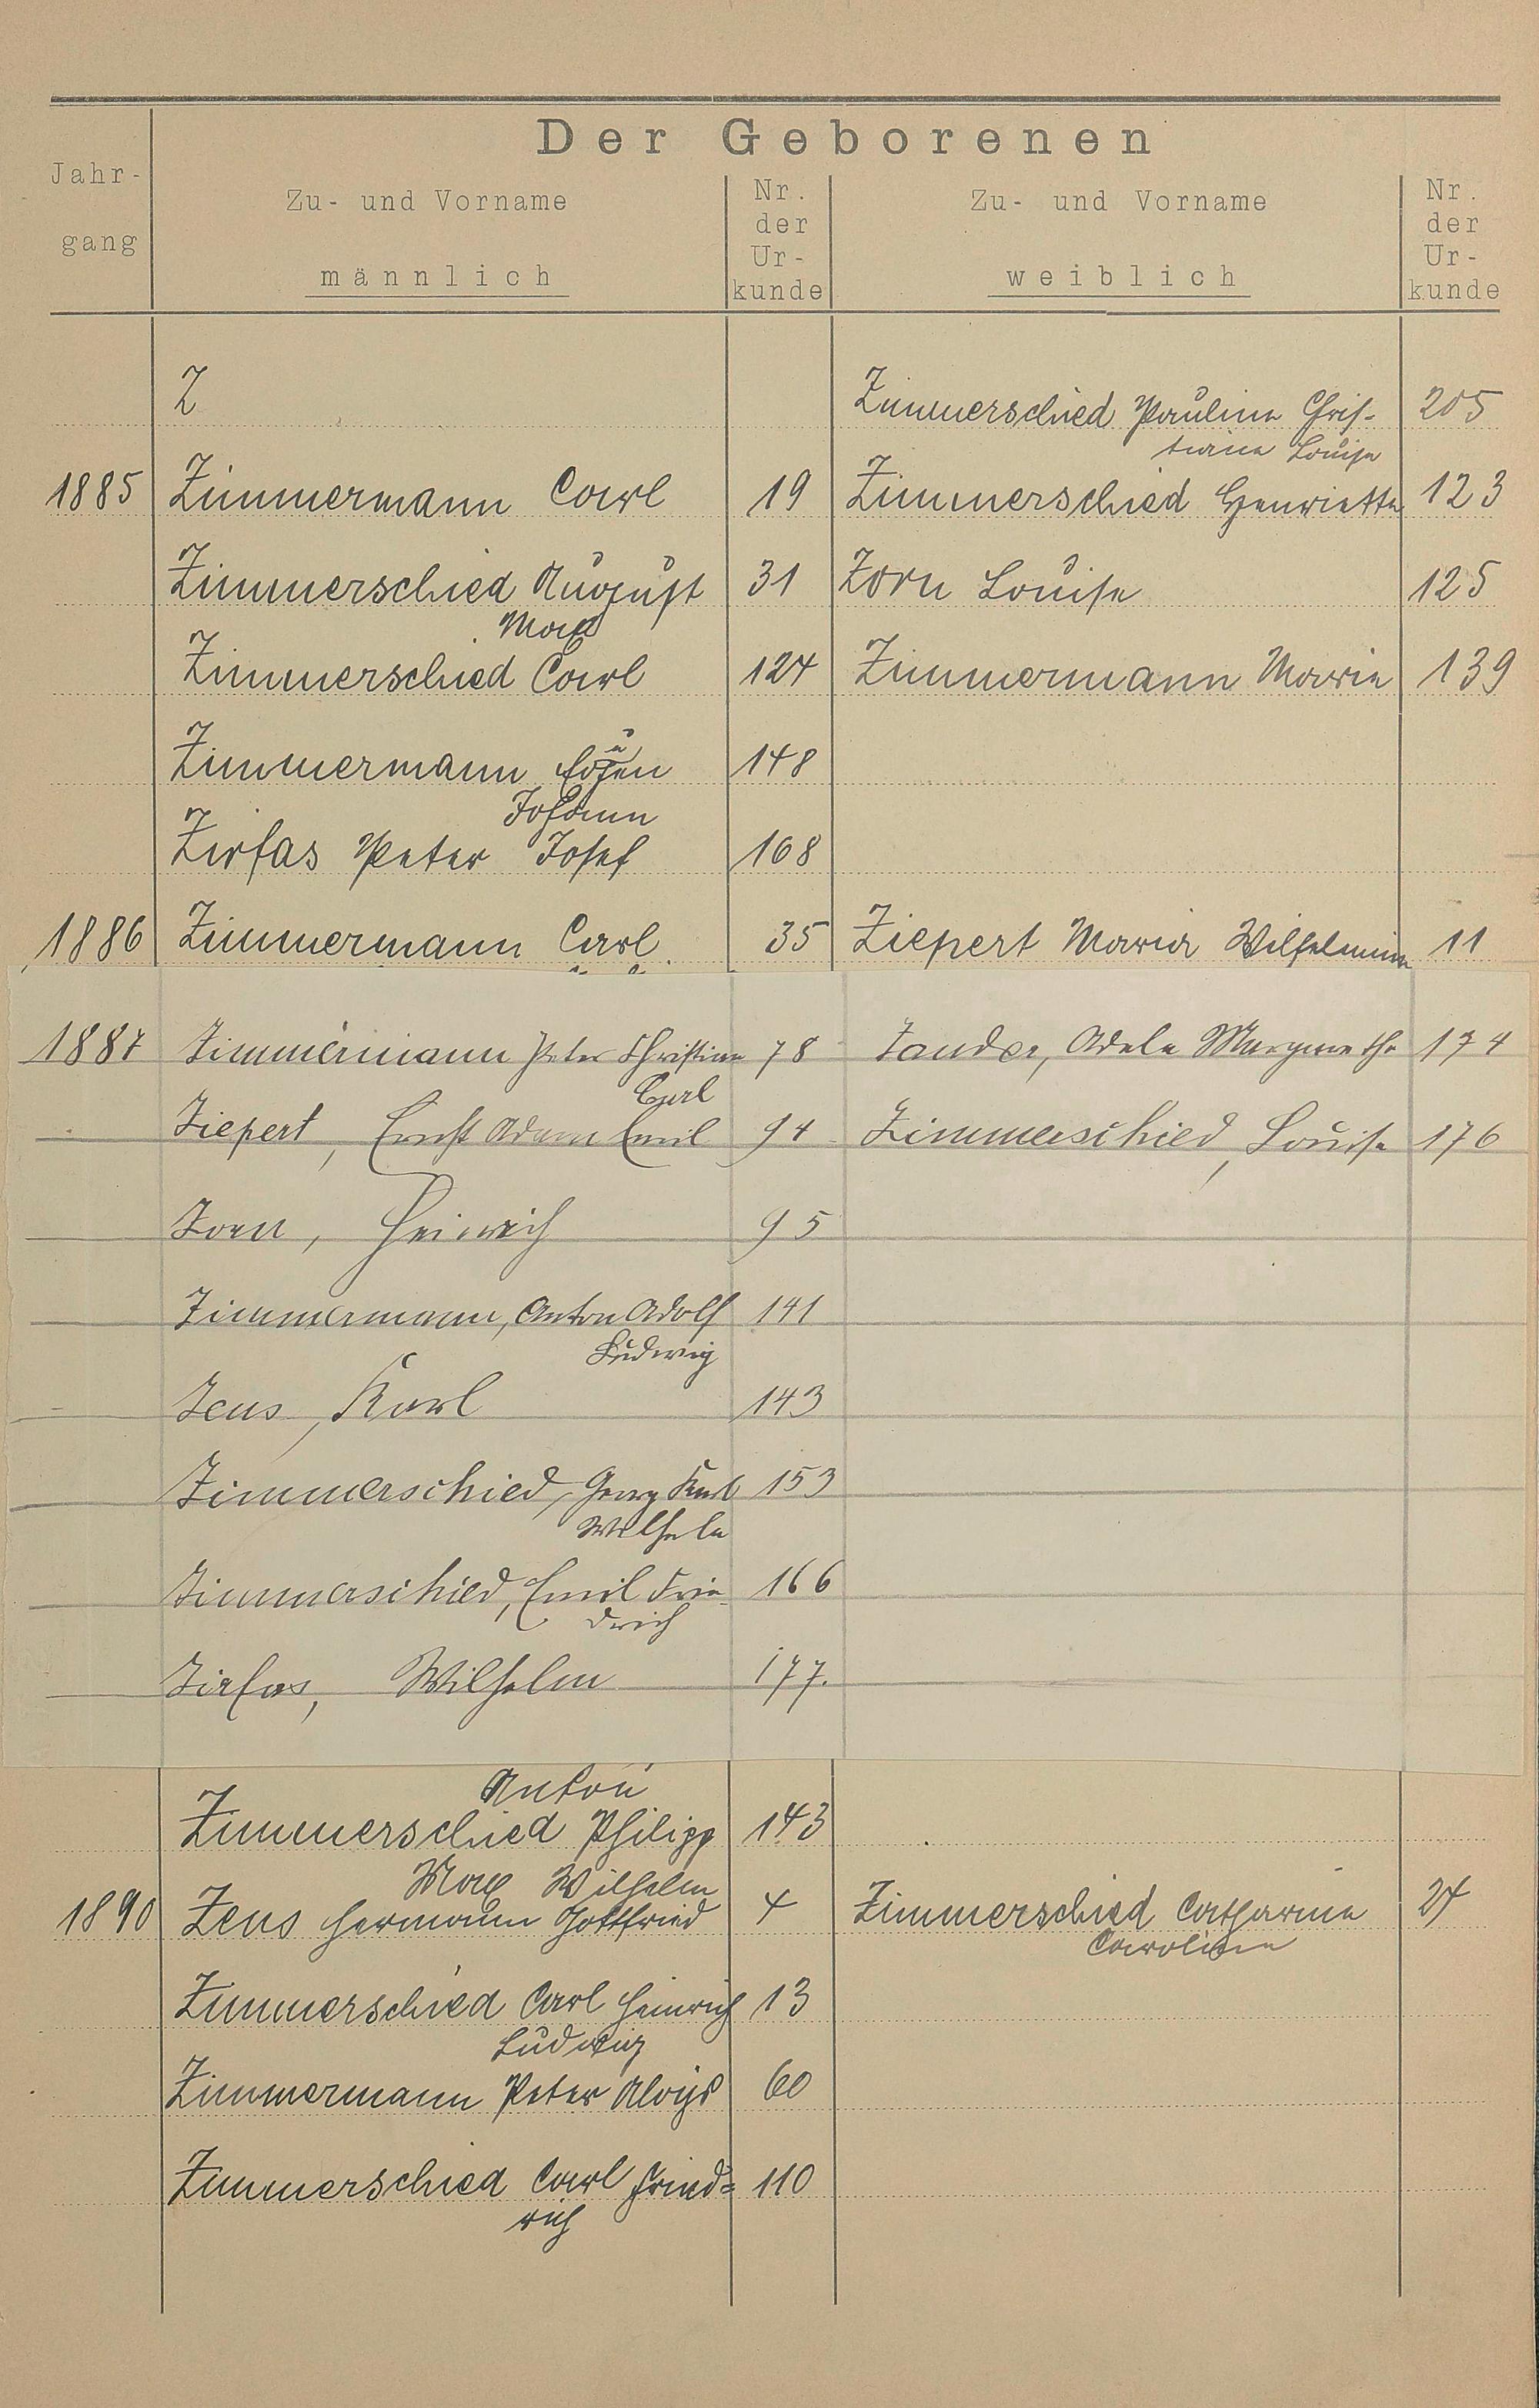 Der Geborenen
Jahr-
gang
Zu- und Vorname
männlich
Nr.
der
Ur-
kunde
Zu- und Vorname
weiblich
Nr.
der
Ur-
kunde
Z
Zimmerschied Pauline Chris- 205
tiane Louise
1885 Zimmermann Carl 19 Zimmerschied Henriette 123
Zimmerschied August 31 Zorn Louise 125
Max
Zimmerschied Carl 124 Zimmermann Marie 139
Zimmermann 148
Johann
Zirfas Peter Josef 168
1886 Zimmermann Carl 35 Ziepert Maria Wilhelmine 11
1887 Zimmermann Peter Christian 78 Zander, Adele Margarethe 174
Carl
Ziepert, Ernst Adam Emil 94 Zimmerschied, Louise 176
Zorn, Heinrich 95
Zimmermann, Anton Adolf 141
Ludwig
Zeus, Karl 143
Zimmerschied, Georg Karl 153
Wilhelm
Zimmerschied, Emil Frie- 166
drich
Zirfas, Wilhelm 177.
Anton
Zimmerschied Philipp 143
Max Wilhelm
1890 Zeus Hermann Gottfried 4 Zimmerschied Catharina 24
Caroline
Zimmerschied Carl Heinrich 13
Ludwig
Zimmermann Peter Aloys 60
Zimmerschied Carl Fried= 110
rich